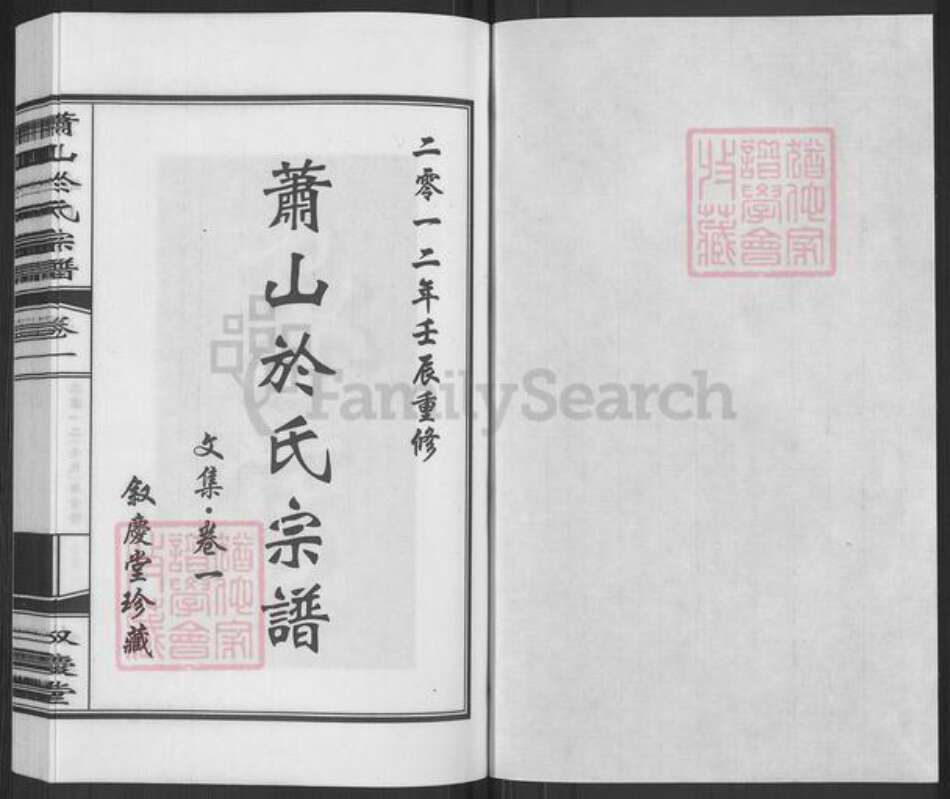 二零一二年壬辰重修
蕭山於氏宗譜
文集·卷一
敘慶堂珍藏
蕭山於氏宗譜
卷一
堂
家
譜學會
收藏
家
譜學會
收藏
FamilySearch